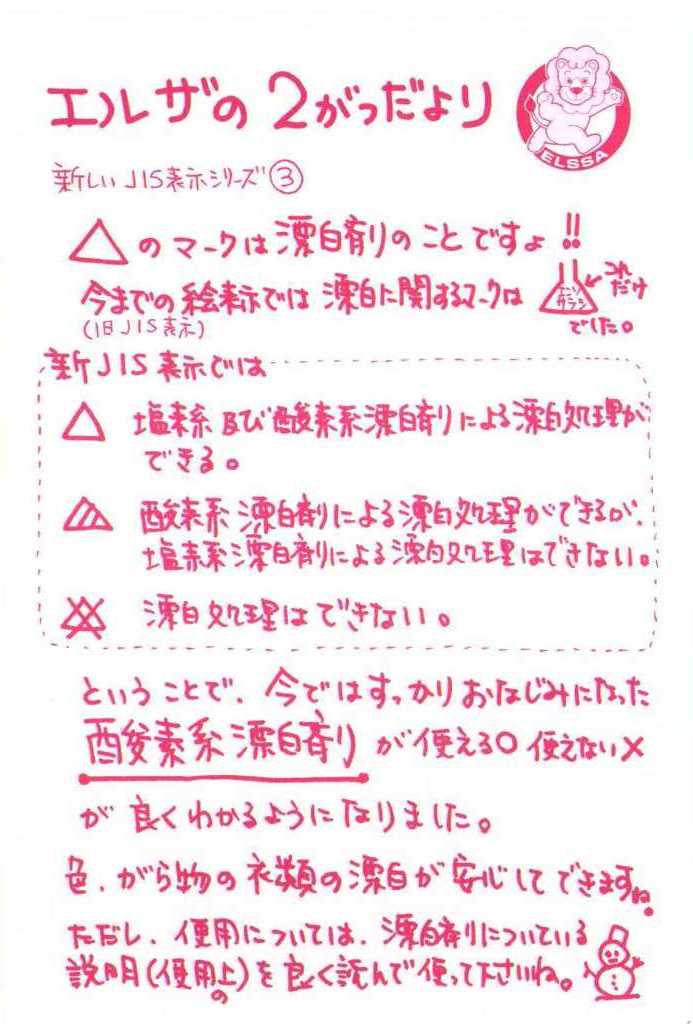 エルザの 2がつだより
ELSSA
新しいJIS表示シリーズ③
△のマークは漂白剤のことですよ!!
今までの絵表示では漂白に関するマークは
(旧JIS表示)
エンソ
サラシ
これ
だけ
でした。
新JIS表示では
△ 塩素系及び酸素系漂白剤による漂白処理が
できる。
酸素系漂白剤による漂白処理ができるが、
塩素系漂白剤による漂白処理はできない。
漂白処理はできない。
ということで、今ではすっかりおなじみになった
酸素系漂白剤が使える○使えない×
が良くわかるようになりました。
色、がら物の衣類の漂白が安心してできますね。
ただし、使用については、漂白剤についている
説明(使用上の)を良く読んで使って下さいね。